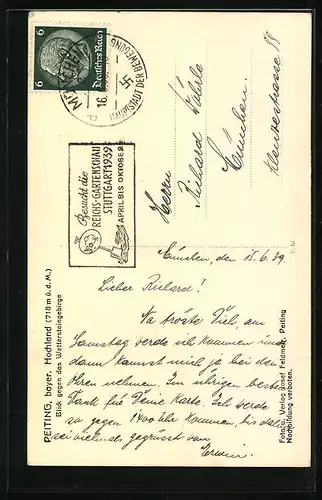 6 Deutsches Reich 6
MÜNCHEN
16.
HAUPTSTADT DER BEWEGUNG
Besucht die
REICHS-GARTENSCHAU
STUTTGART 1939
APRIL BIS OKTOBER
Herrn
Richard
München
München, den 15.6.39
Lieber Richard!
Na tröste Dich, am
Samstag werde ich kommen und
dann kannst mich ja bei den
Ohren nehmen. Im übrigen besten
Dank für Deine Karte. Ich werde
so gegen 1400 Uhr kommen, bis dahin
sei vielmals gegrüsst von
Erwin
PEITING, bayer. Hochland (718 m ü. d. M.)
Blick gegen das Wettersteingebirge
Foto u. Verlag Josef Feldmeir, Peiting
Nachbildung verboten.